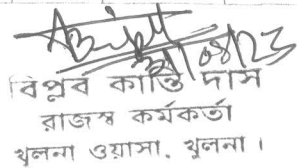 31/08/23
বিপ্লব কান্তি দাস
রাজস্ব কর্মকর্তা
খুলনা ওয়াসা, খুলনা।